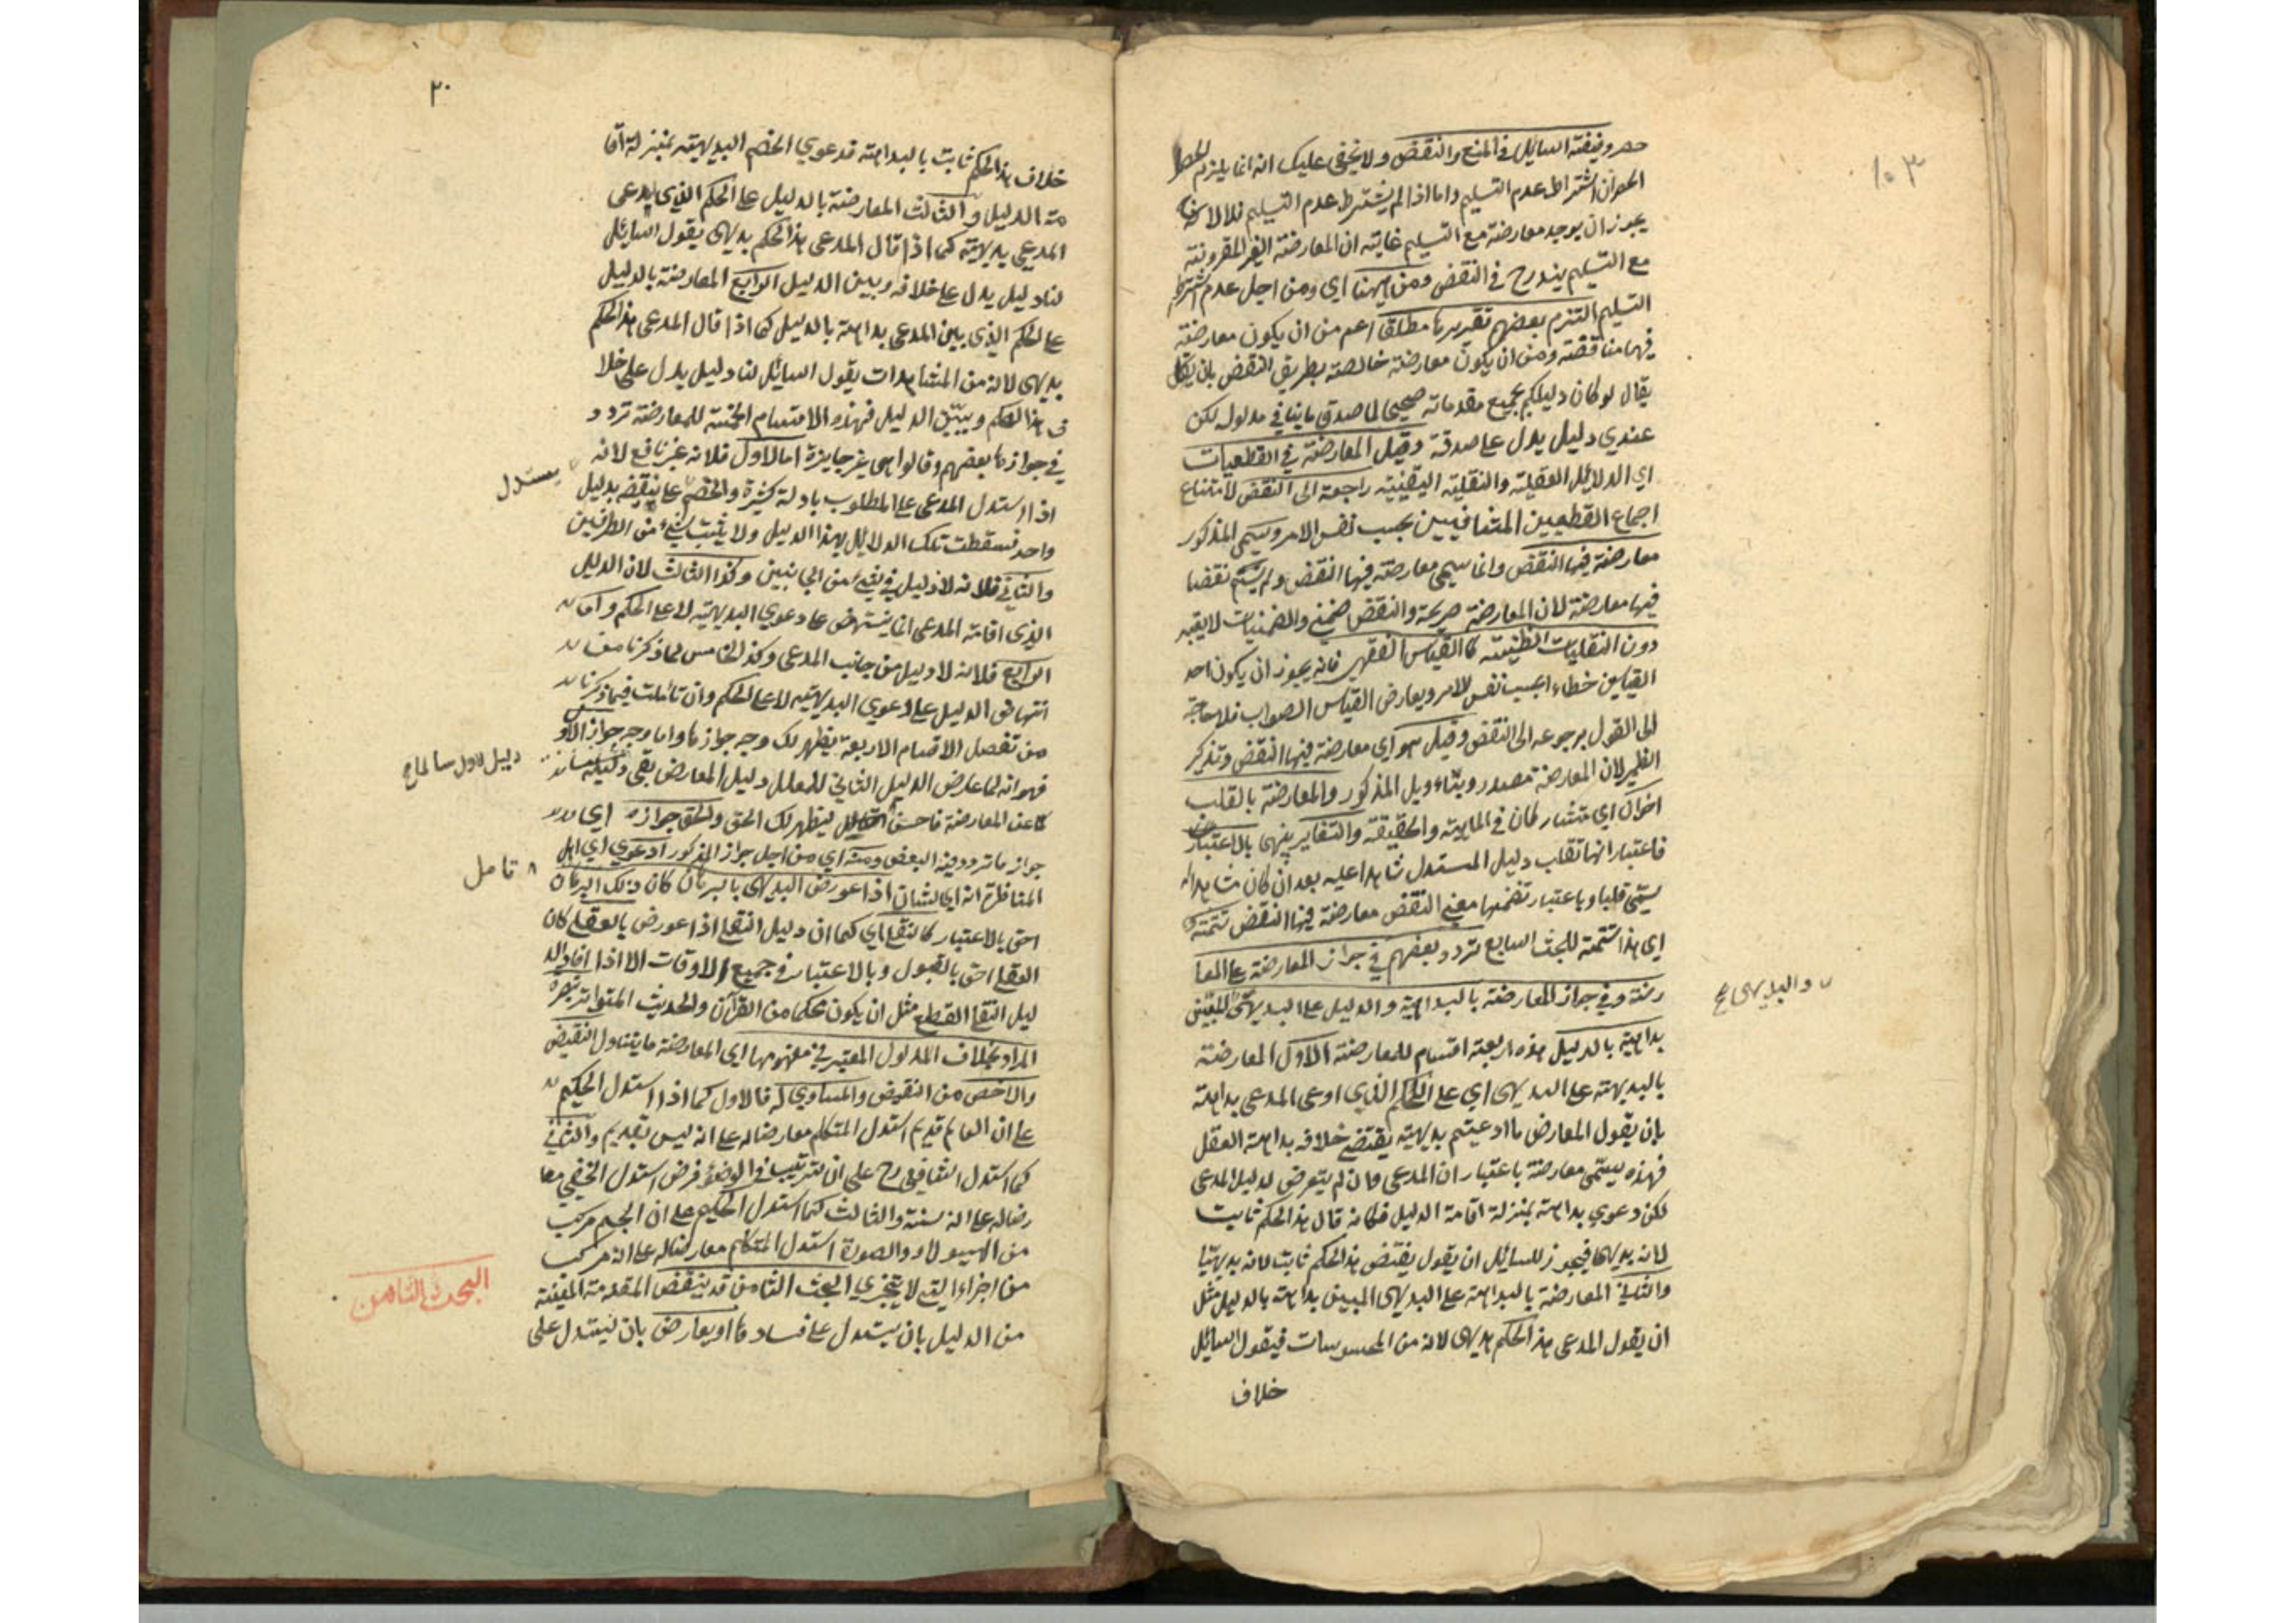 ١٠٣
حصر وظيفته السايل في المنع والنقض ولا يخفى عليك انه انما يلزم الحصر
ان اشتراط عدم التسليم واما اذا لم يشترط عدم التسليم فلا لانه
يجوز ان يوجد معارضة مع التسليم غايته ان المعارضة الغير المقرونة
مع التسليم يندرج في النقض ومن ههنا اي ومن اجل عدم اشتراط
التسليم التزم بعضهم تقريرها مطلقا اعم من ان يكون معارضة
فيها مناقضة ومن ان يكون معارضة خالصة بطريق النقض بان
يقال لو كان دليلكم بجميع مقدماته صحيحا لما صدق ما ينافي مدلوله لكن
عندي دليل يدل على صدقه وقيل المعارضة في القطعيات
اي الدلائل العقلية والنقلية اليقينية راجعة الى النقض لامتناع
اجماع القطعيين المتنافيين بحسب نفس الامر ويسمى المذكور
معارضة فيها النقض وانما سمي معارضة فيها النقض ولم يسم نقضا
فيها معارضة لان المعارضة صريحة والنقض ضمني والضمنيات لا يعتبر
دون النقليات الظنية كالقياس الفقهي فانه يجوز ان يكون احد
القياسين خطاء بحسب نفس الامر ويعارض القياس الصواب فلا حاجة
الى القول برجوعه الى النقض وقيل هو اي معارضة فيها النقض وتذكير
الضمير لان المعارضة مصدر وبتاويل المذكور والمعارضة بالقلب
اخوان اي متشاركان في الماهية والحقيقة والتغاير بينهما بالاعتبار
فاعتبار انها تقلب دليل المستدل شاهدا عليه بعد ان كان شاهدا له
يسمى قلبا وباعتبار تضمنها معنى النقض معارضة فيها النقض تتمة
اي هذا تتمة للبحث السابع تردد بعضهم في جواز المعارضة على المعا
رضة وفي جواز المعارضة بالبداهة والدليل على البديهي المبين
والبديهي صح
بداهته بالدليل هذه اربعة اقسام للمعارضة الاول المعارضة
بالبديهة على البديهي اي على الحكم الذي ادعى المدعي بداهته
بان يقول المعارض ما ادعيتم بديهيته يقتضي خلافه بداهة العقل
فهذه يسمى معارضة باعتبار ان المدعي وان لم يتعرض لدليل المدعى
لكن دعوي بداهته بمنزلة اقامة الدليل فكانه قال هذا الحكم ثابت
لانه بديهي فيجوز للسائل ان يقول نقيض هذا الحكم ثابت لانه بديهي
والثاني المعارضة بالبداهة على البديهي المبين بداهته بالدليل مثل
ان يقول المدعي هذا الحكم بديهي لانه من المحسوسات فيقول السائل
خلاف
٢٠
خلاف هذا الحكم ثابت بالبداهته فدعوي الخصم البديهيته بمنزلة اقا
مته الدليل والثالث المعارضة بالدليل على الحكم الذي يدعى
المدعي بديهيته كما اذا قال المدعي هذا الحكم بديهي يقول السائل
لنا دليل يدل على خلافه وبين الدليل الرابع المعارضة بالدليل
على الحكم الذي بين المدعي بداهته بالدليل كما اذا قال المدعي هذا الحكم
بديهي لانه من المشاهدات يقول السايل لنا دليل يدل على خلا
ف هذا الحكم ويبين الدليل فهذه الاقسام الخمسة للمعارضة تردد
في جوازها بعضهم وقالوا هي غير جايزة اما الاول فلانه غير نافع لانه
اذا استدل المدعي على المطلوب بادلة كثيرة والخصم على نقيضه بدليل
يستدل
واحد فسقطت تلك الدلايل بهذا الدليل ولا يثبت شيء من الطرفين
والثاني فلانه لا دليل في شيء من الجانبين وكذا الثالث لان الدليل
الذي اقامه المدعي انما ينتهض على دعوي البديهية لا على الحكم واما
الرابع فلانه لا دليل من جانب المدعي وكذا الخامس لما ذكرنا من
انتهاض الدليل على دعوي البديهية لا على الحكم وان تاملت فيما ذكرنا
من تفصل الاقسام الاربعة يظهر لك وجه جوازها واما وجه جواز الاو
فهو انه لما عارض الدليل الثاني للمعلل دليل المعارض بقي
دليل الاول سالما صح
عن المعارضة فاحسن التامل ليظهر لك الحق والحق جوازه اي
تامل
جواز ما تردد فيه البعض ومنه اي من اجل جواز المذكور ادعوي اي اهل
المناظرة انه اي الشان اذا عورض البديهي بالبرهان كان ذلك البرهان
احق بالاعتبار كالنقلي اي كما ان دليل النقلي اذا عورض بالعقلي كان
العقلي احق بالقبول وبالاعتبار في جميع الاوقات الا اذا افاد الد
ليل النقلي القطع مثل ان يكون محكما من القرآن والحديث المتواتر تبصرة
المراد بخلاف المدلول المعتبر في مفهومها اي المعارضة ما يتناول النقيض
والاخص من النقيض والمساوي له فالاول كما اذا استدل الحكيم
على ان العالم قديم استدل المتكلم معارضا له على انه ليس بقديم والثاني
كما استدل الشافعي رح على ان الترتيب في الوضوء فرض استدل الحنفي معا
رضا له على انه سنة والثالث كما استدل الحكيم على ان الجسم مركب
من الهيولا والصورة استدل المتكلم معارضا له على انه مركب
من اجزاء التي لا يتجزي البحث الثامن قد ينقض المقدمة المعينة
البحث الثامن
من الدليل بان يستدل على فسادها او يعارض بان يستدل على